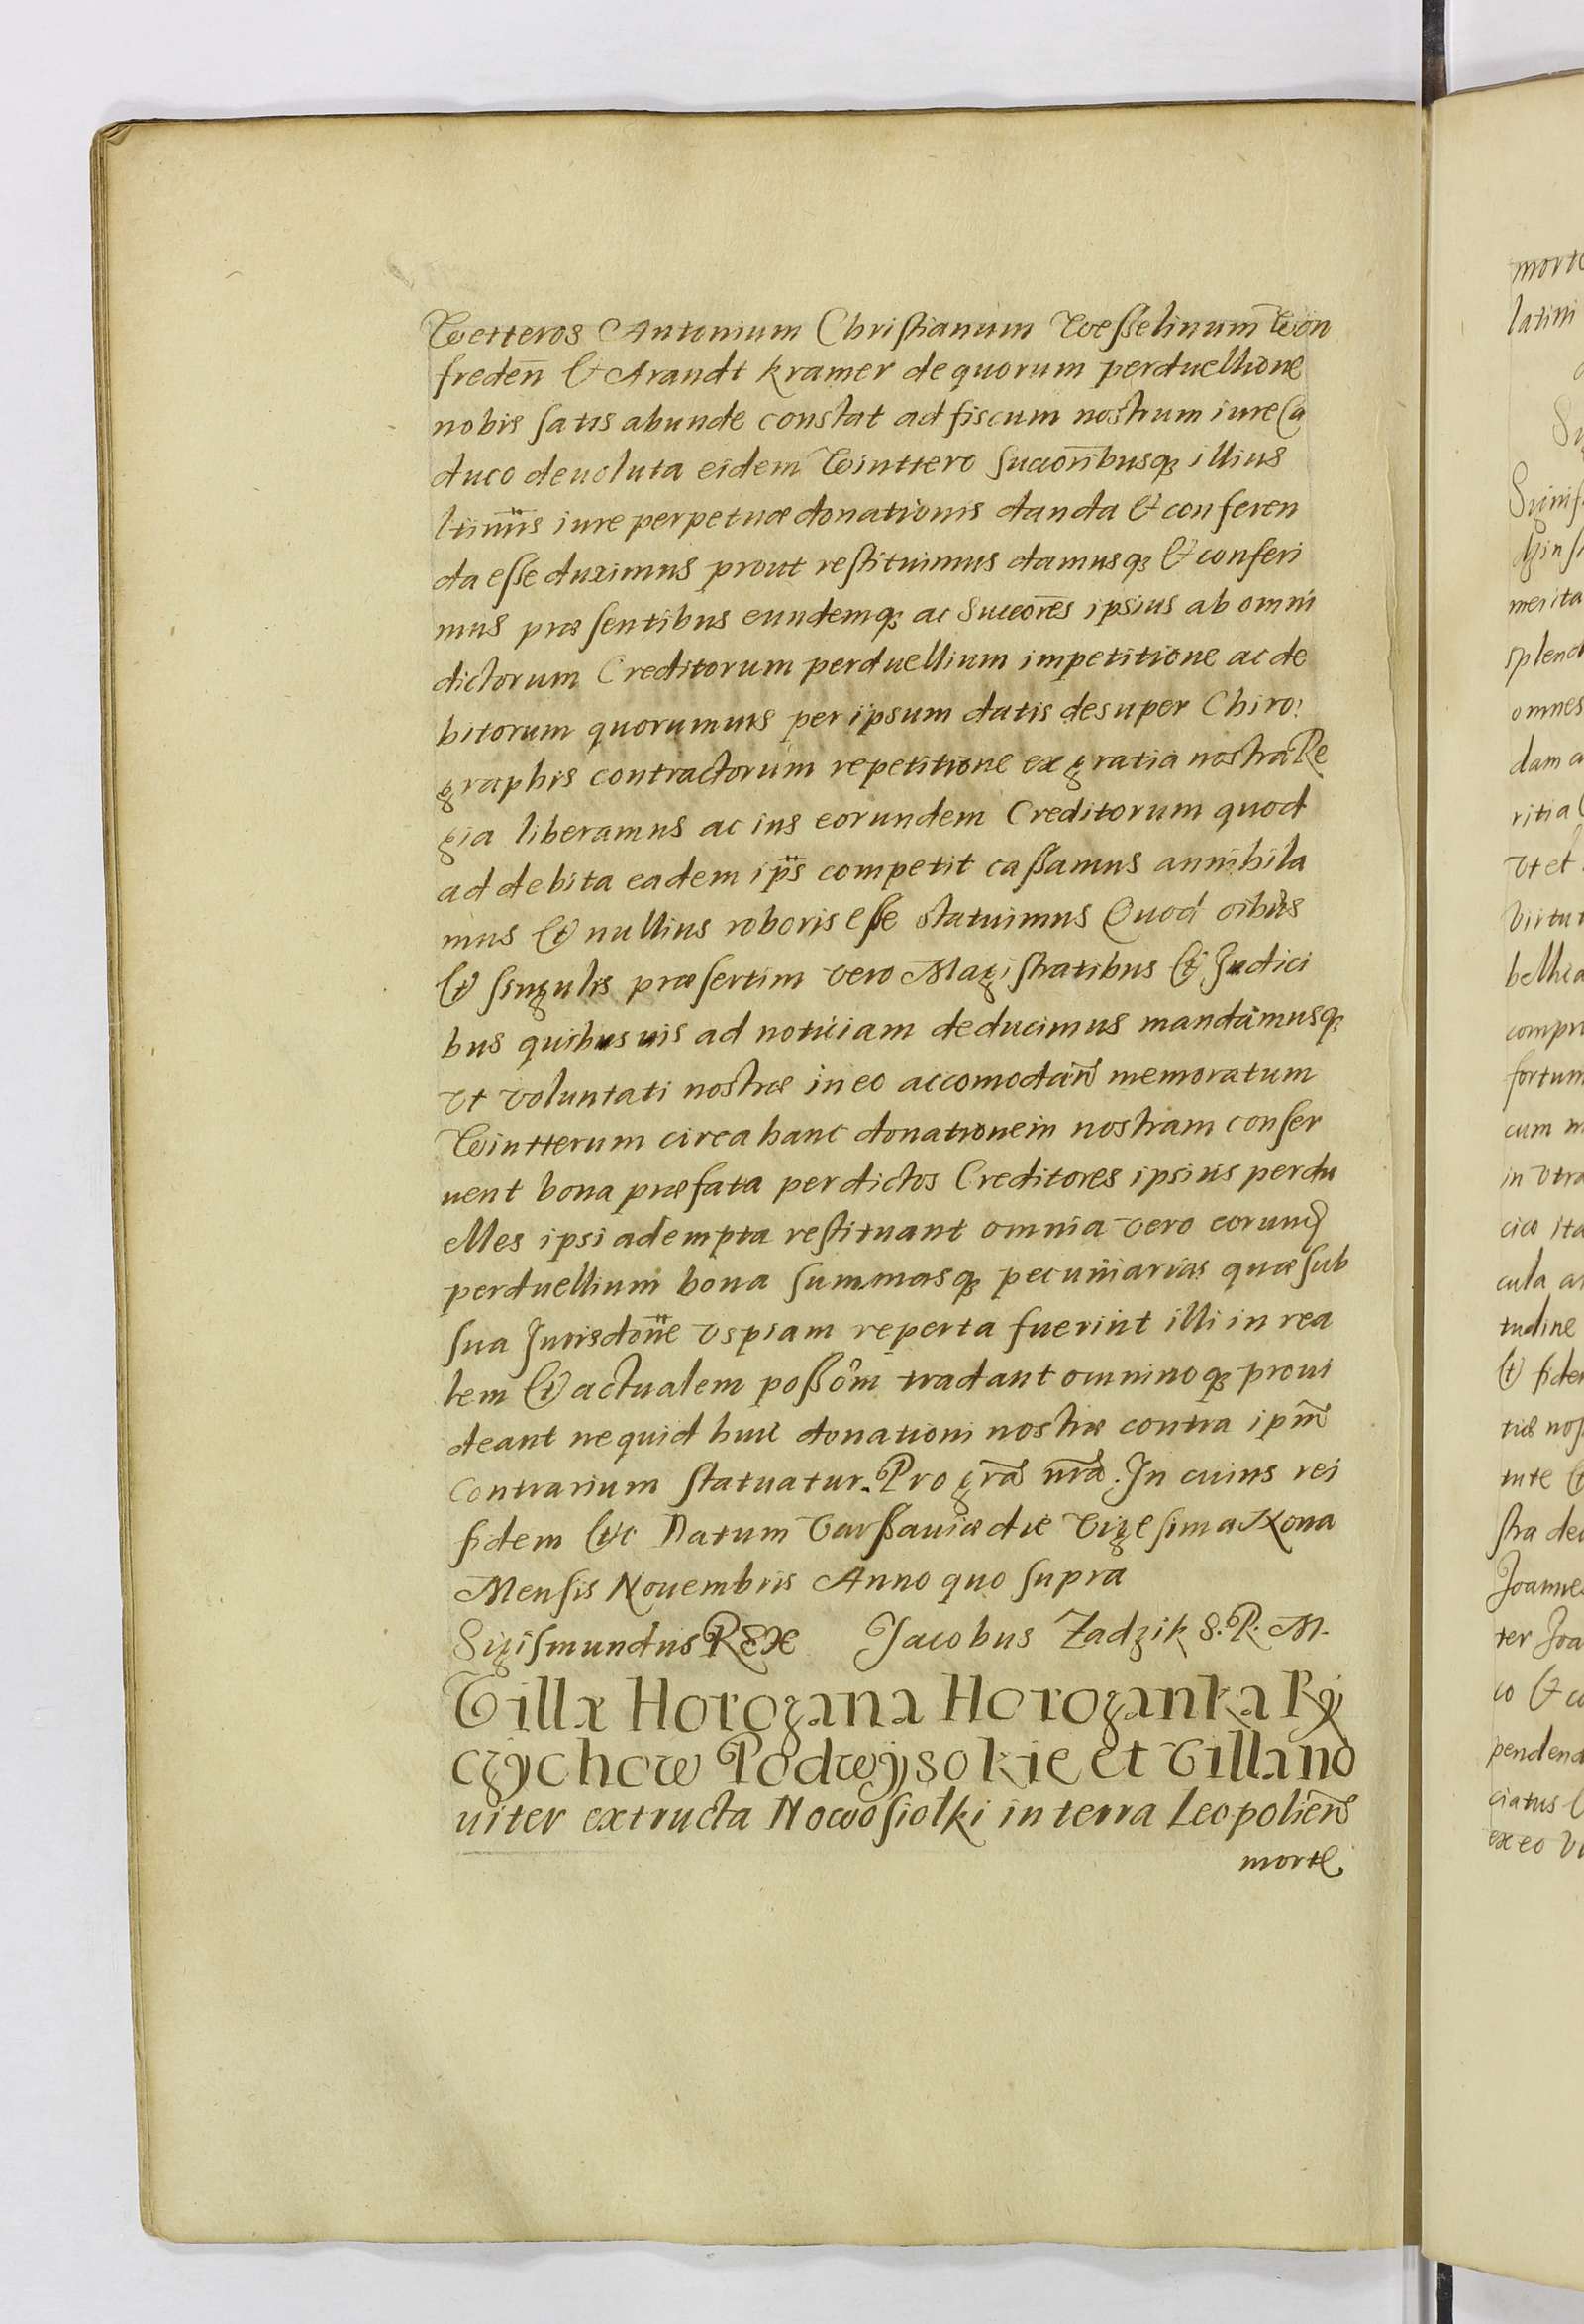 Wetteros Antonium Christianum Wesselinum Won
freden̄ & Arandt kramer de quorum perduellione
nobis satis abunde constat ad fiscum nostrum iure Ca
duco deuoluta eidem Winttero Succorībusq3 illius
ltimīs iure perpetuæ donationis danda & conferen
da esse duximus prout restituimus damusq3 & conferi
mus præsentibus eundemq3 ac Succorēs ipsius ab omni
dictorum Creditorum perduellium impetitione ac de
bitorum quorumuis per ipsum datis desuper Chiro:
graphis contractorum repetitione ex gratia nostra Re
gia liberamus ac ius eorundem Creditorum quod
ad debita eadem ip̄s competit cassamus annihila
mus & nullius roboris esse statuimus Quod oibus
& singulis præsertim vero Magistratibus & Judici
bus quibusuis ad noticiam deducimus mandamusq3
vt voluntati nostræ in eo accomodan̄ memoratum
Wintterum circa hanc donationem nostram conser
uent bona præfata per dictos Creditores ipsius perdu
elles ipsi adempta restituant omnia vero eorund
perduellium bona summasq3 pecuniarias quæ sub
sua Jurisdōne vspiam reperta fuerint illi in rea
lem & actualem possōm tradant omninoq3 proui
deant ne quid huic donationi nostræ contra ipm̄
contrarium statuatur. Pro grā nrā. In cuius rei
fidem &c Datum Varssauiæ die Vigesima Nona
Mensis Nouembris Anno quo supra
Sigismundus REX Jacobus Zadzik S. R. M.
Villa Horozana Horozanka Ry
czychow Podwysokie et Villa no
uiter extructa Nowosiolki in terra Leopolien̄
morte
morte
latini
Sigis
merita
splend
omnes
dam a
ritia
vt et
virtut
bellica
compr
fortun
cum
in vtra
cico ita
cula
tudine
& fide
tiæ nos
tute &
stra de
Joannes
ter Joa
co & co
pendend
ciatus
ex eo